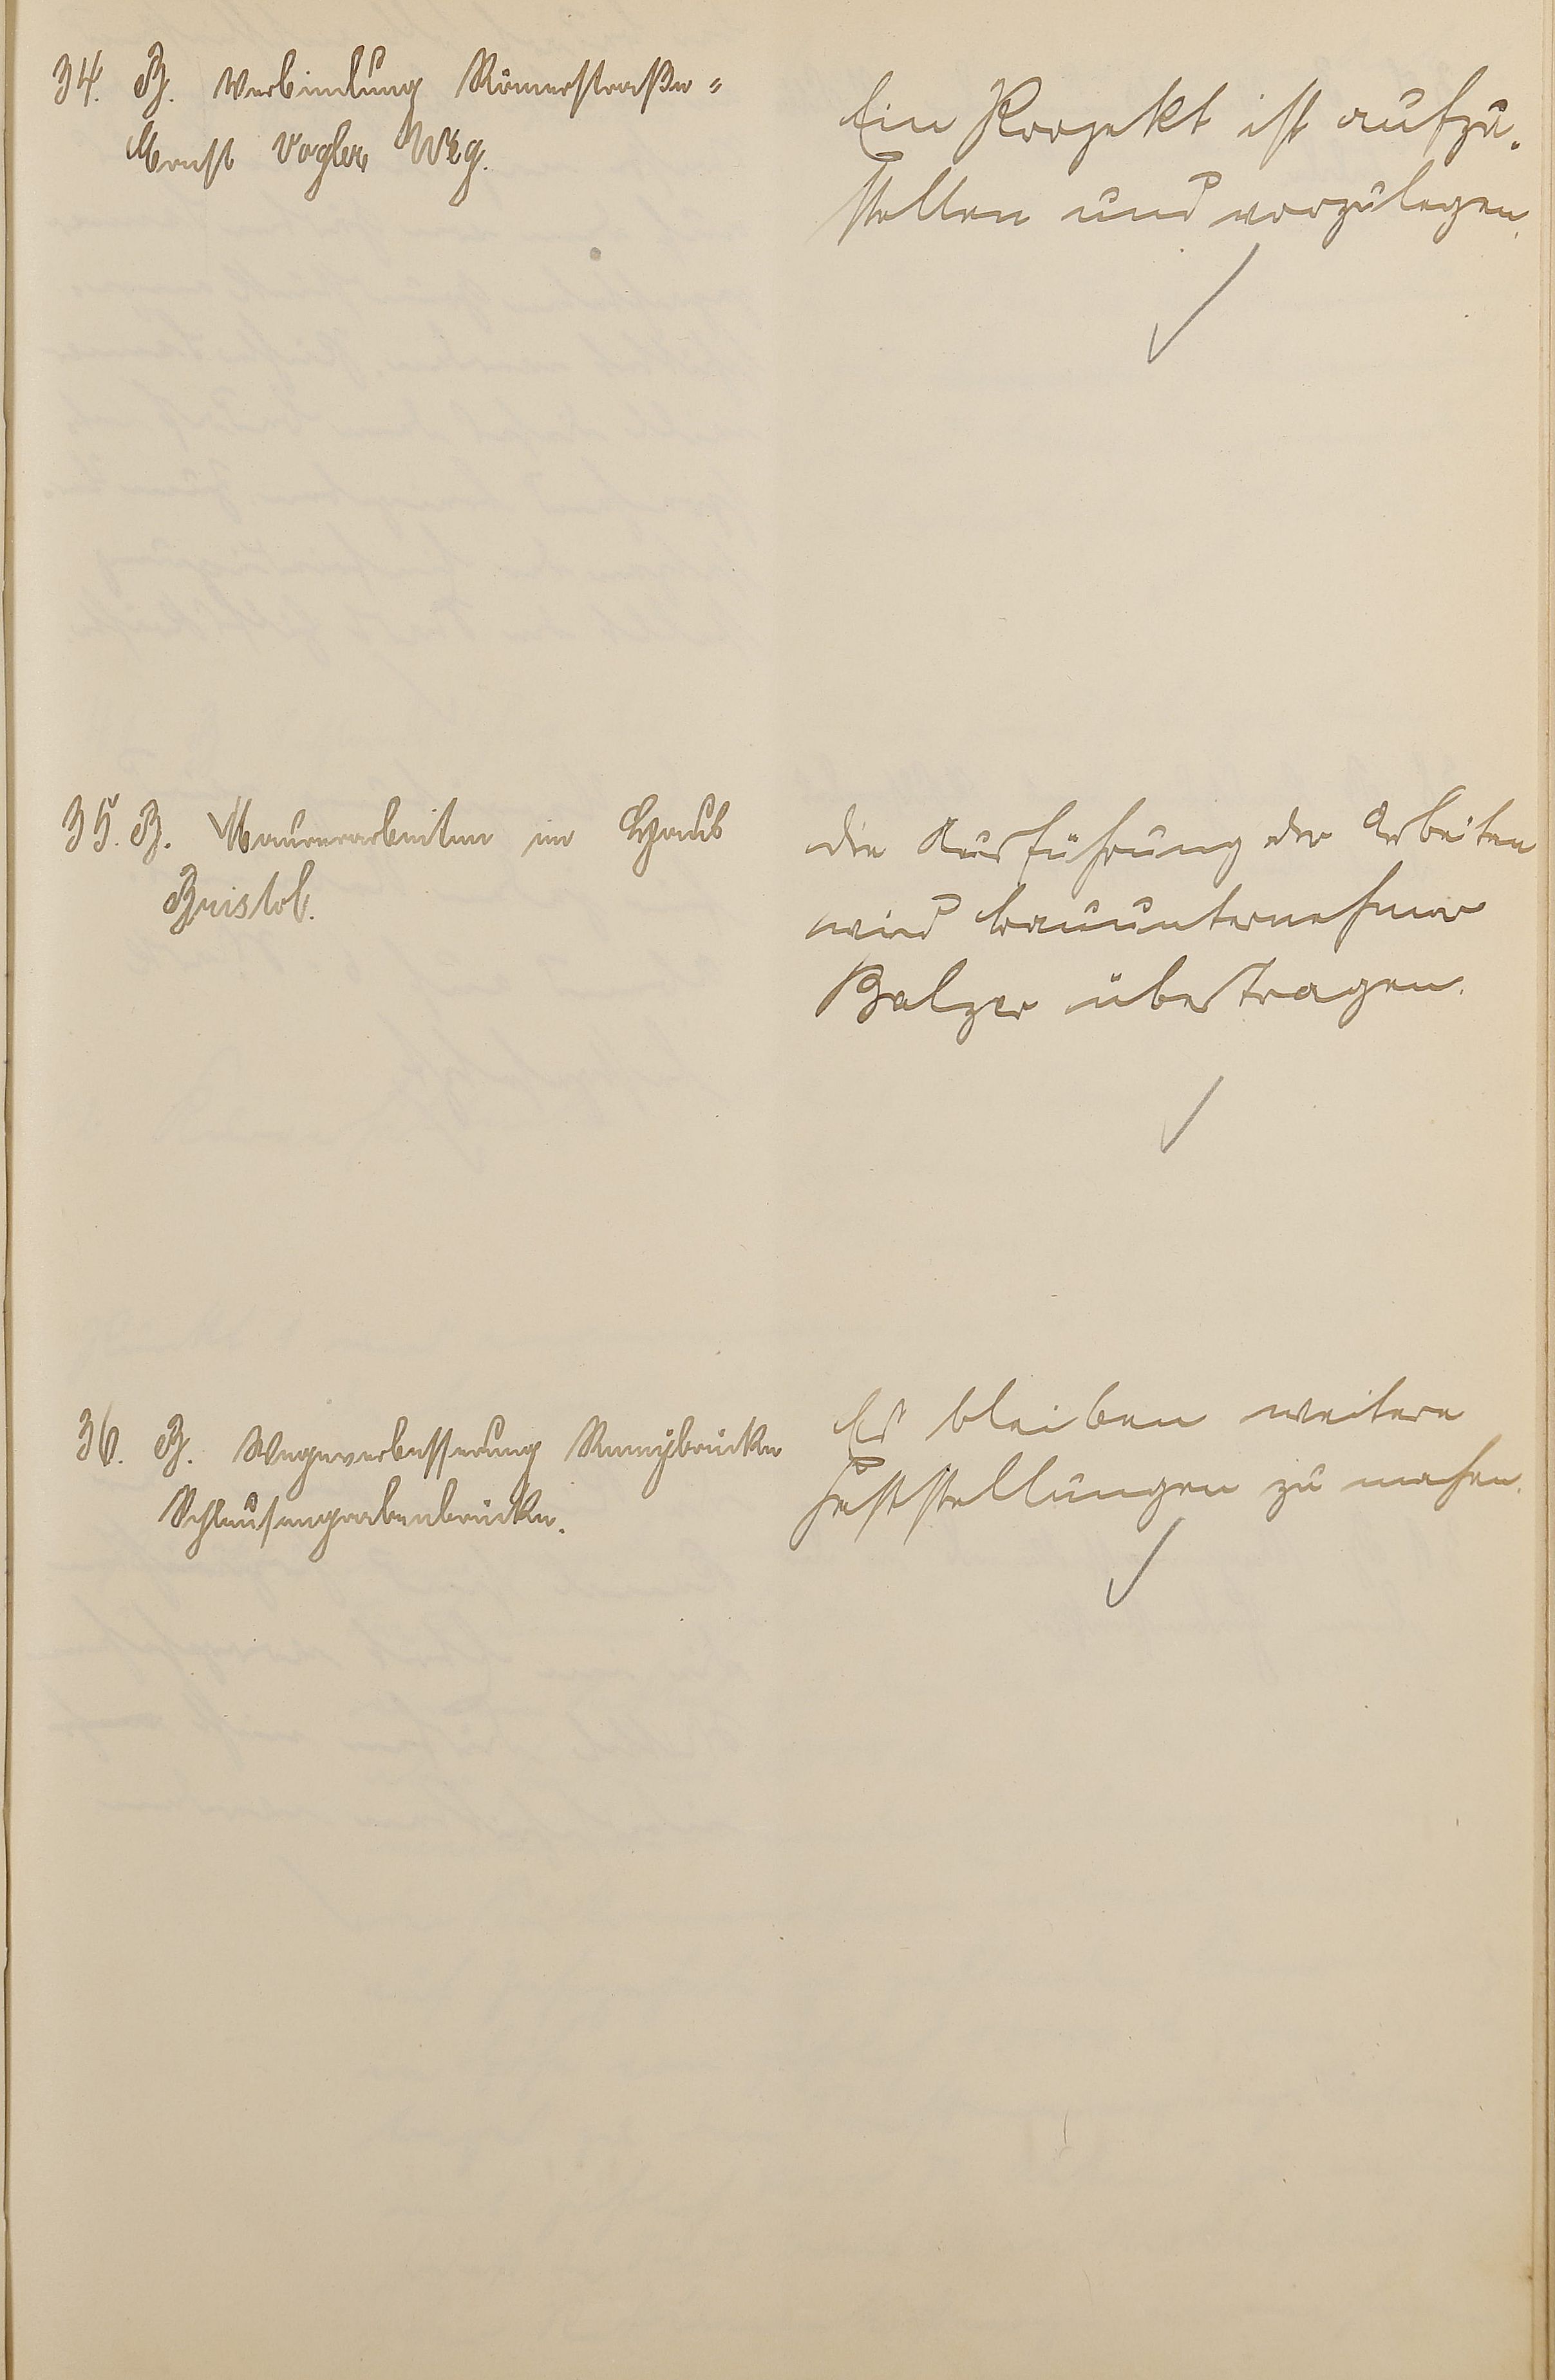 34. B. Verbindung Römerstraße-
Ernst Vogler Weg.
Ein Projekt ist aufzu-
stellen und vorzulegen.
35. B. Maurerarbeiten im Haus
Bristol.
Die Ausführung der Arbeiten
wird Bauunternehmer
Balzer übertragen.
36. B. Wegeverbesserung Remybrücke
Schleusengrabenbrücke.
Es bleiben weitere
Feststellungen zu machen.